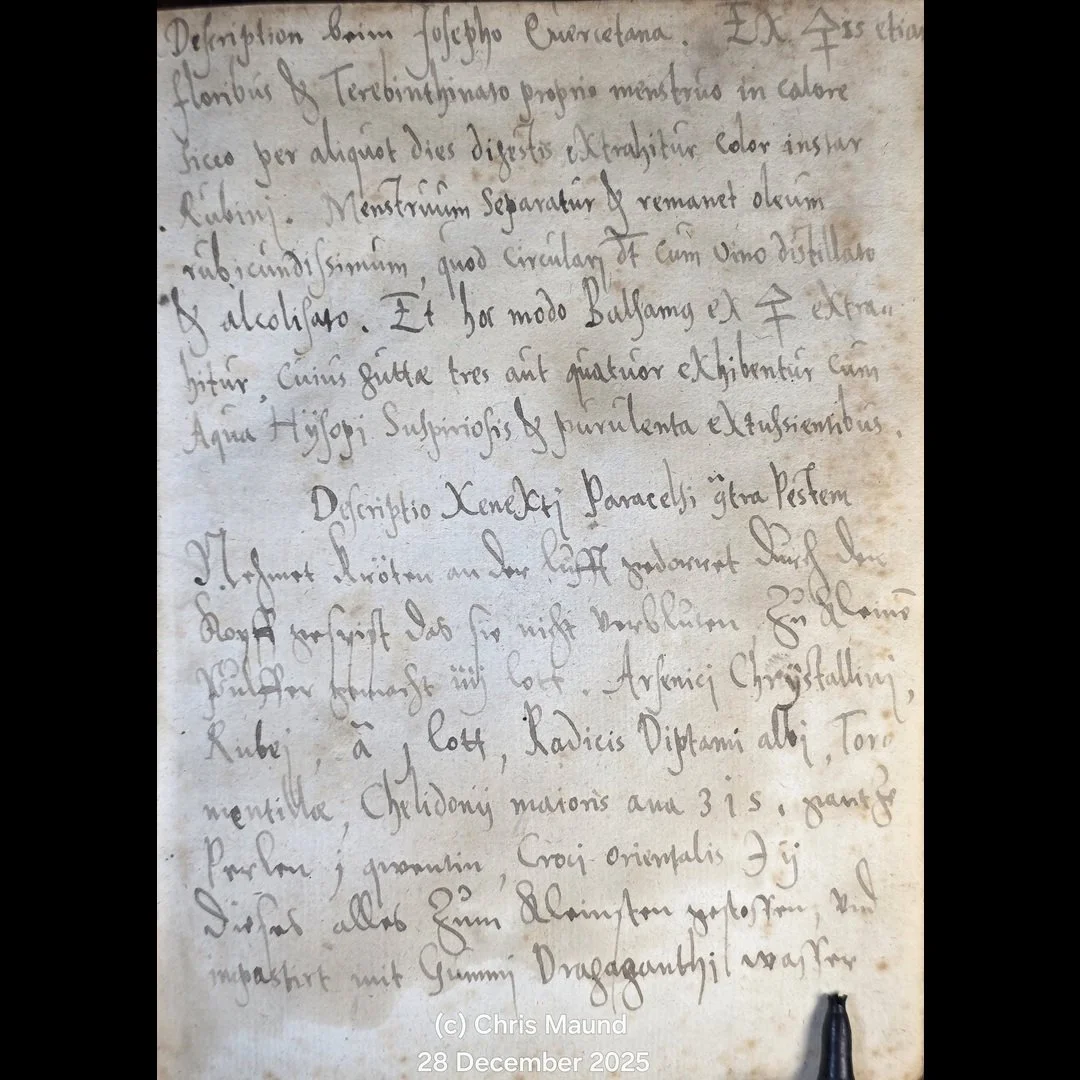 Description beim Josepho Quercetana. Ex 🜍is etiam
floribus & Terebinthinato proprio menstruo in calore
sicco per aliquot dies digestis extrahitur color instar
Rubini. Menstruum Separatur & remanet oleum
rubicundissimum, quod Circulari dt Cum vino distillato
& alcolisato. Et hoc modo Balsamus ex 🜍 extra-
hitur, Cuius guttæ tres aut quatuor exhibentur Cum
Aqua Hÿsopi Suspiriosis & purulenta extussientibus.
Descriptio Xenexti Paracelsi gtra Pestem
Nehmet Kröten an der lufft gedorret durch den
Kopff gespist das sie nicht verbluten, Zu kleinē
Pulffer gemacht iiij lott. Arsenici Chrÿstallini,
Rubei, ā j lott, Radicis Diptami albi, Tor
mentillæ, Chelidonij maioris ana ʒ i s. gantze
Perlen j quentin, Croci orientalis ℈ ij
dieses alles Zum kleinsten gestossen, und
impastirt mit Gummi Dragaganthi wasser
(c) Chris Maund
28 December 2025